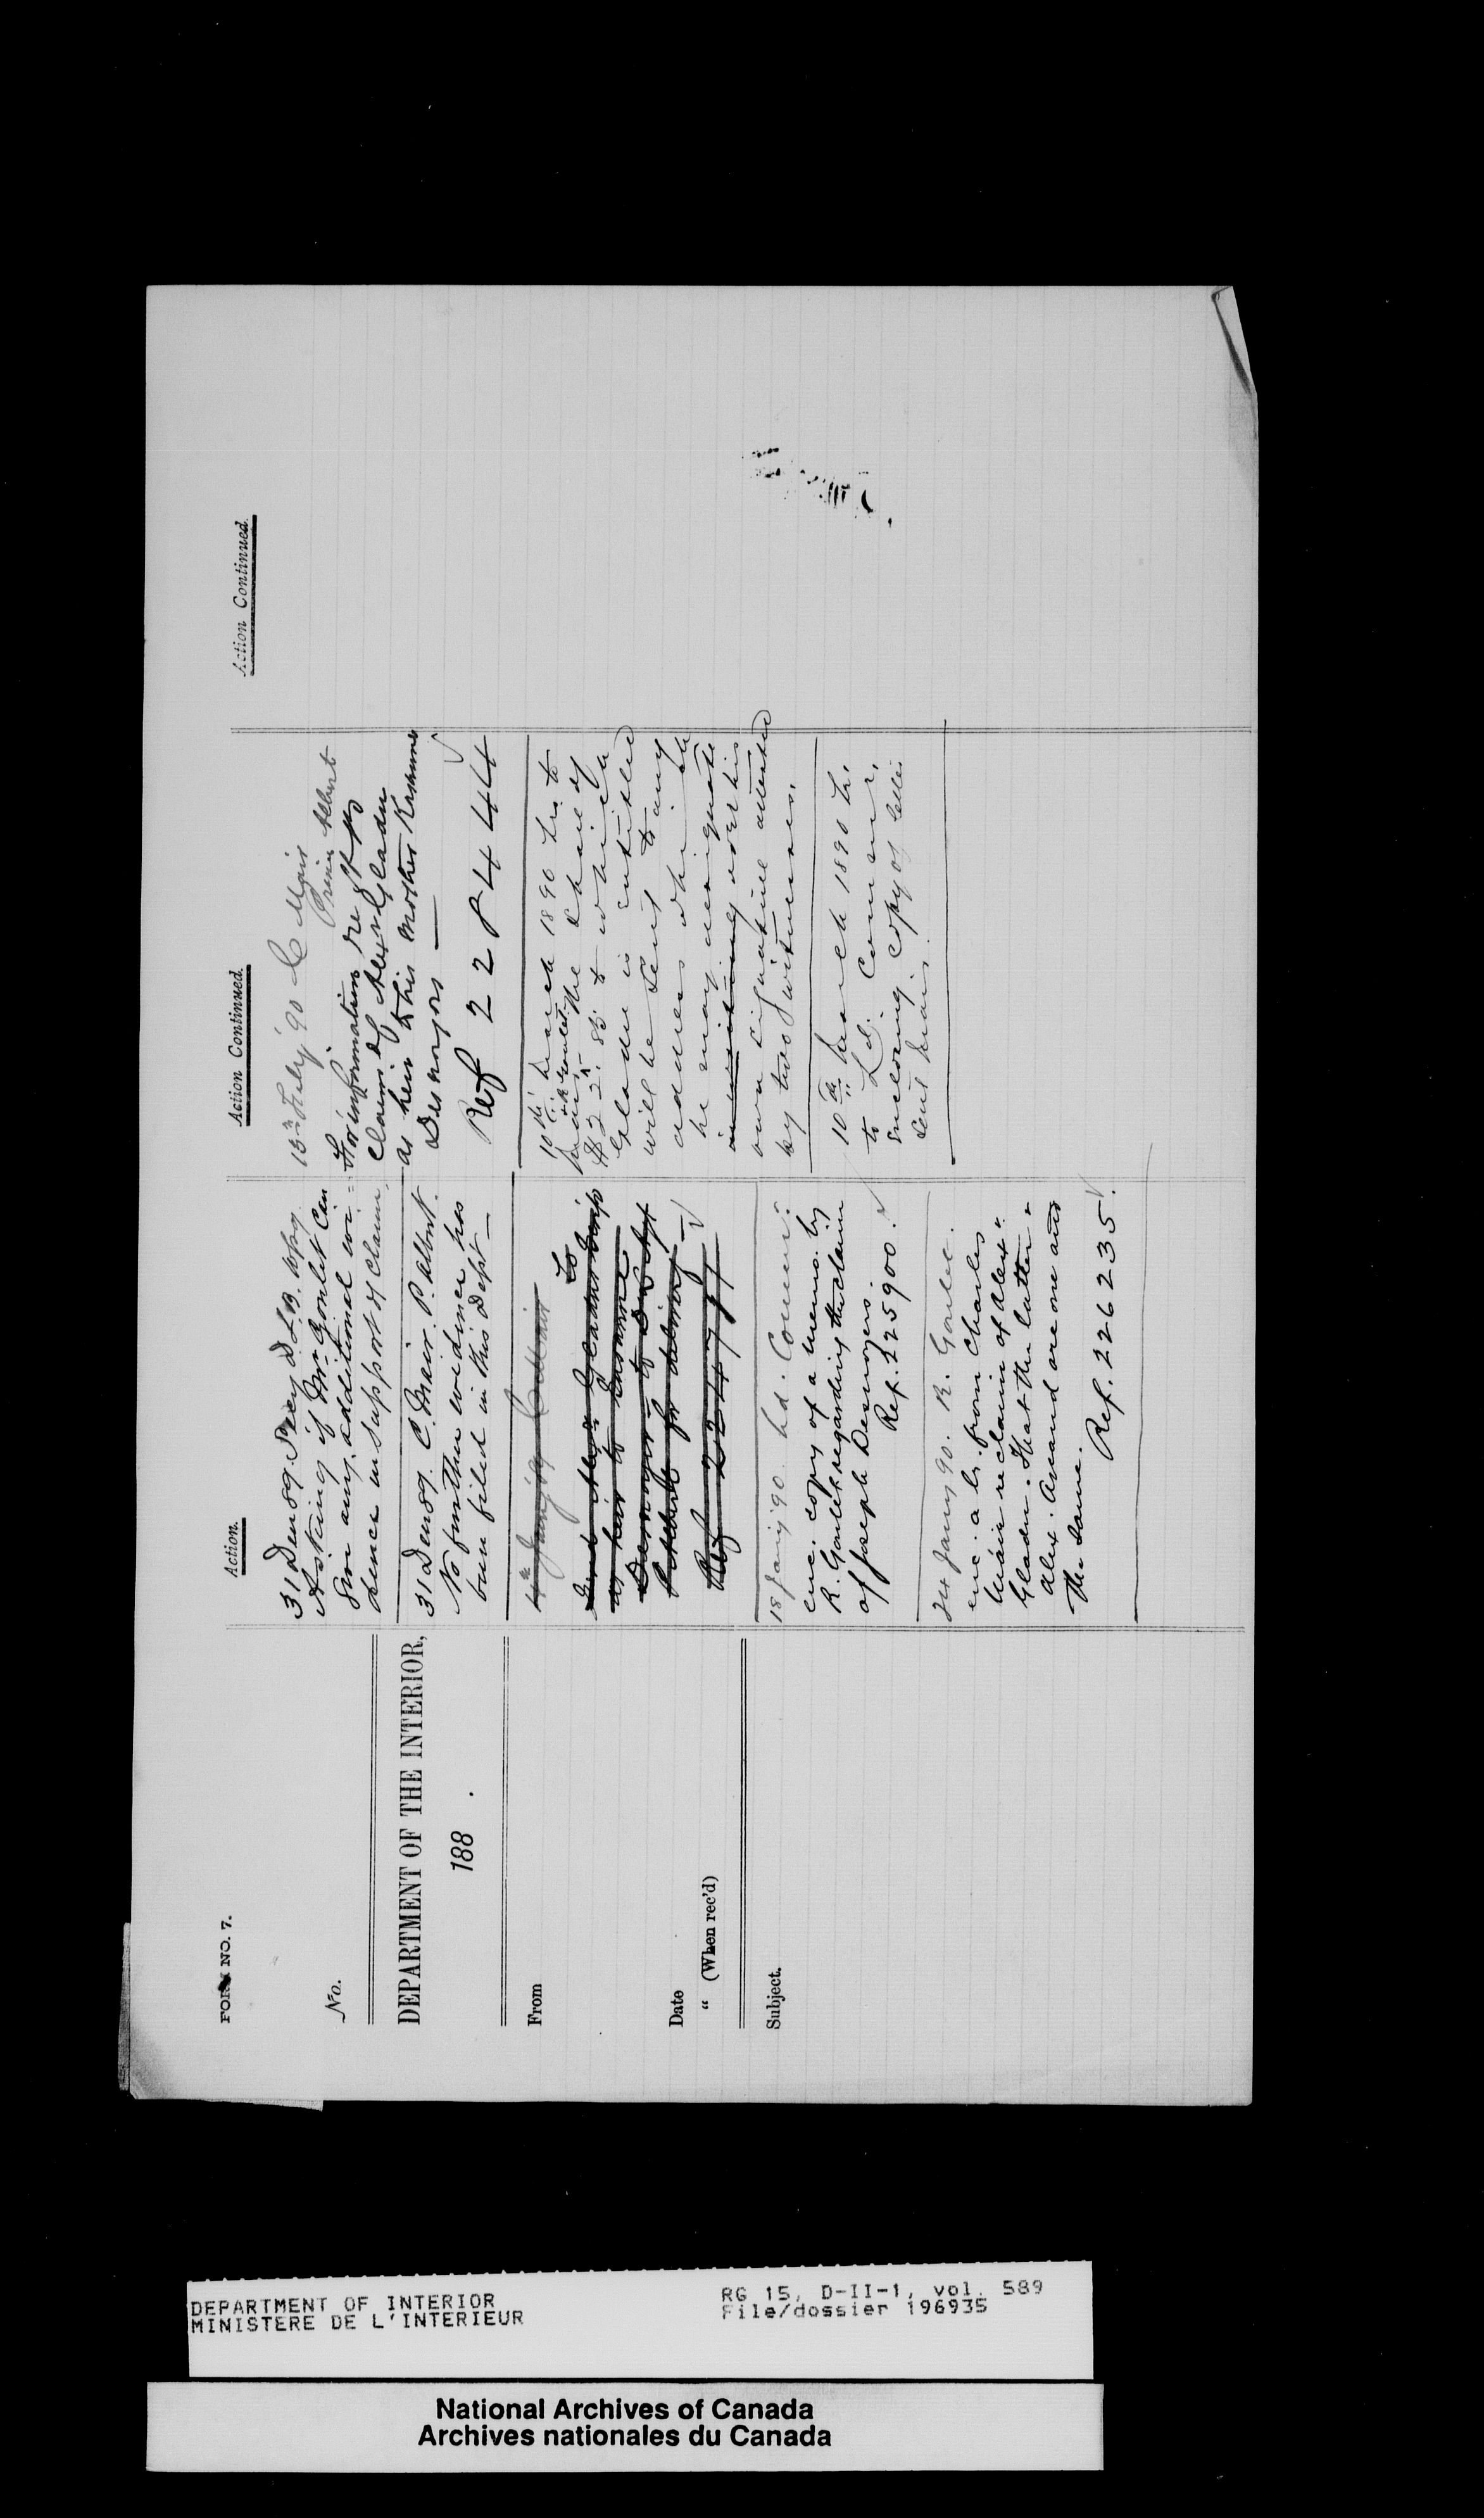 FORM NO. 7.
No.
DEPARTMENT OF THE INTERIOR,
188 .
From
Date
" (When rec'd)
Subject.
Action.
31 Dec 89. Secy D.L.B. Wpg.
Asking if Mr Goulet can
give any additional evi-
dence in support of claim.
31 Dec 89. C. Mair. P. Albert.
No further evidence has
been filed in this Dept —
4th Jany 90 C Mair
to
Send Alex Gladu Scrip
as heir to
Desnoyers to
for delivery
Ref 224797
18 Jany '90. Ld. Commr.
enc. copy of a memo. by
R. Goulet regarding the claim
of Joseph Desnoyers.
Ref. 225900.
24 Jany 90. R. Goulet.
enc. a lr. from Charles
Mair re claim of Alex.
Gladu. That the latter &
Alex. Amand are one and
the same.
Ref. 226235.
Action Continued.
13th Feby '90 C Mair
Prince Albert
For information re
claim of Alex Gladu
as heir to his mother
Desnoyers —
Ref 228444
10th March 1890 Lr. to
Mair
& R Goulet. The share of
$22.85 to which
Gladu is entitled
will be sent to any
address which
he may designate
in writing over his
own signature attested
by two witnesses.
10th March 1890 Lr.
to Ld. Commr.
enclosing copy of letter
sent Mair.
Action Continued.
DEPARTMENT OF INTERIOR
MINISTERE DE L'INTERIEUR
RG 15, D-II-1, vol. 589
File/dossier 196935
National Archives of Canada
Archives nationales du Canada